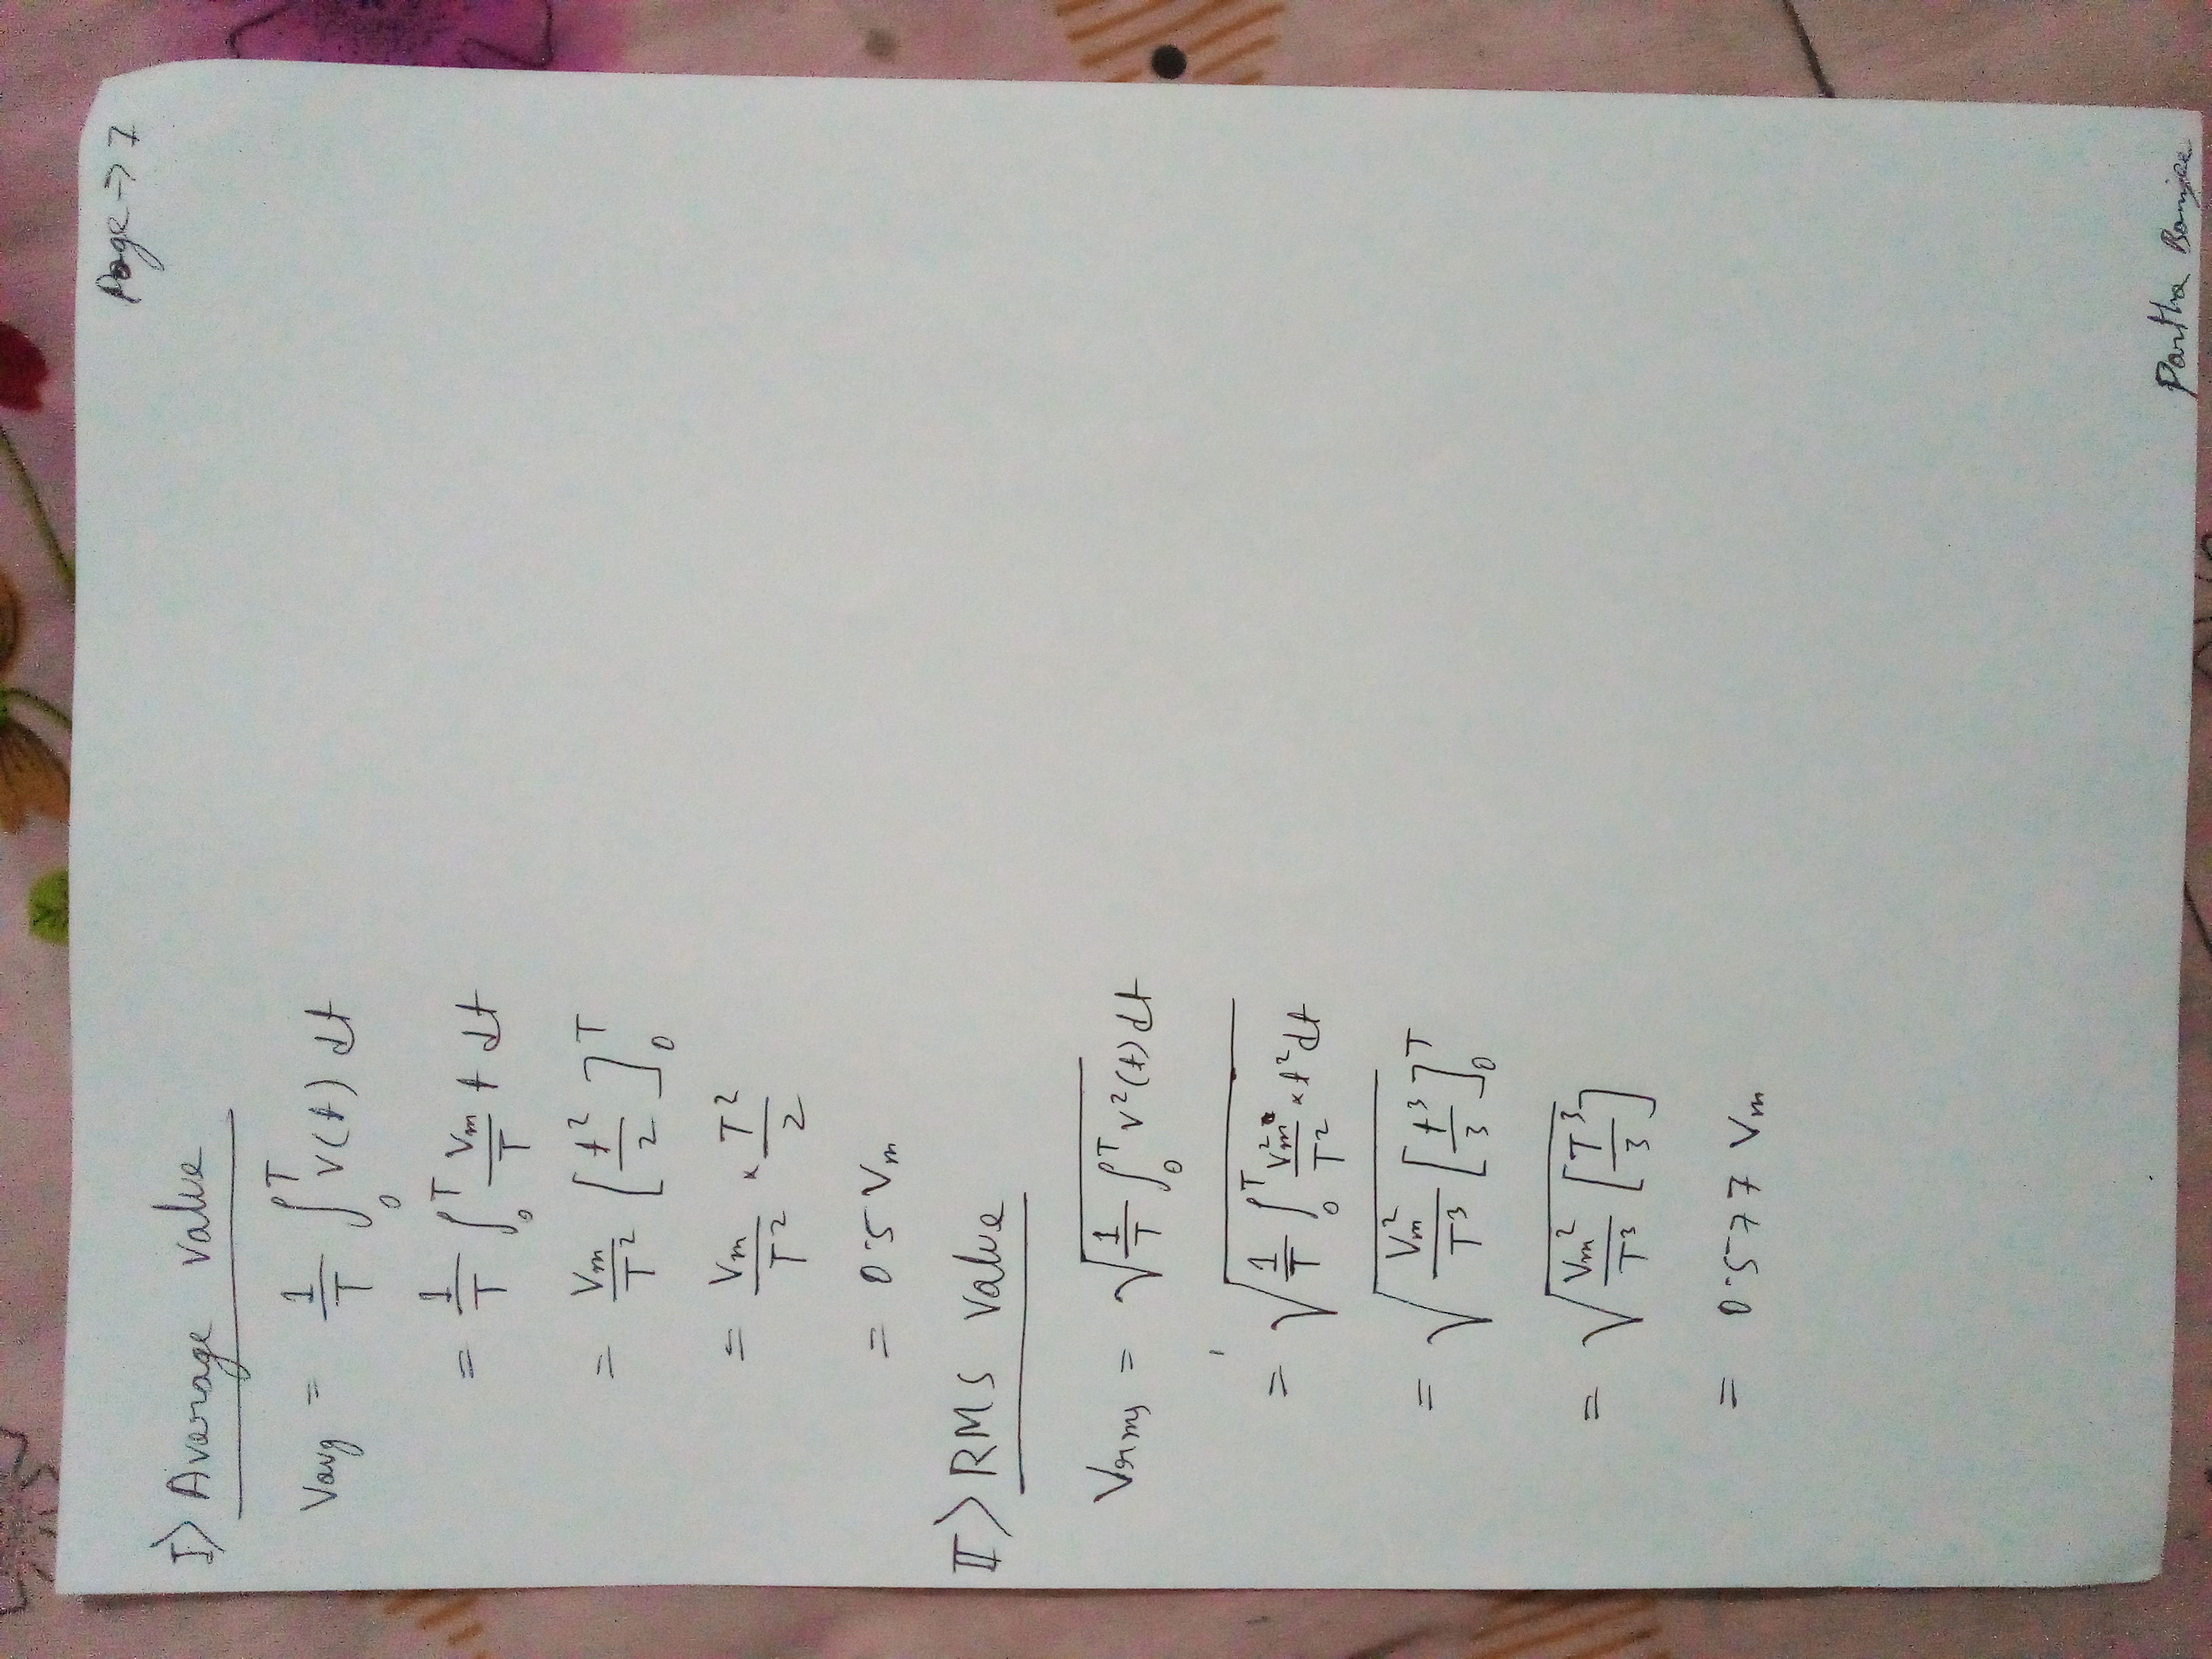 Page → 7
I> Average value
Vavg = 1/T ∫₀ᵀ v(t) dt
= 1/T ∫₀ᵀ Vm/T t dt
= Vm/T² [t²/2]₀ᵀ
= Vm/T² × T²/2
= 0.5 Vm
II> RMS value
Vrms = √(1/T ∫₀ᵀ v²(t) dt)
= √(1/T ∫₀ᵀ Vm²/T² × t² dt)
= √(Vm²/T³ [t³/3]₀ᵀ)
= √(Vm²/T³ [T³/3])
= 0.577 Vm
Partha